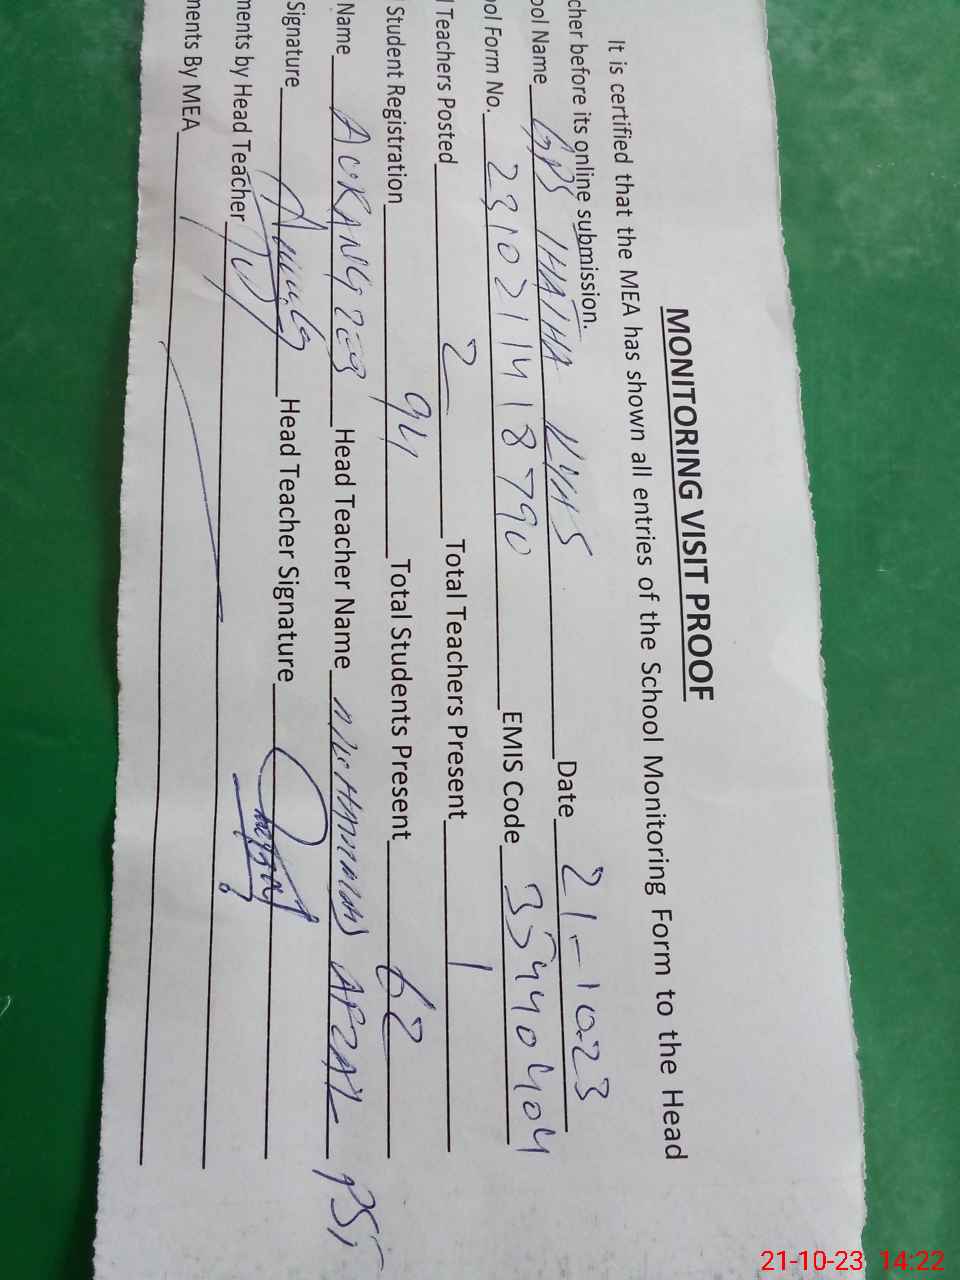 MONITORING VISIT PROOF
It is certified that the MEA has shown all entries of the School Monitoring Form to the Head
cher before its online submission.
ool Name GPS Date 21-10-23
ool Form No. 23102141 8790 EMIS Code 35440404
l Teachers Posted 2 Total Teachers Present 1
Student Registration 94 Total Students Present 62
Name AURANGZEB Head Teacher Name MUHAMMAD AFZAL PST
Signature Head Teacher Signature
ments by Head Teacher
ments By MEA
21-10-23 14:22